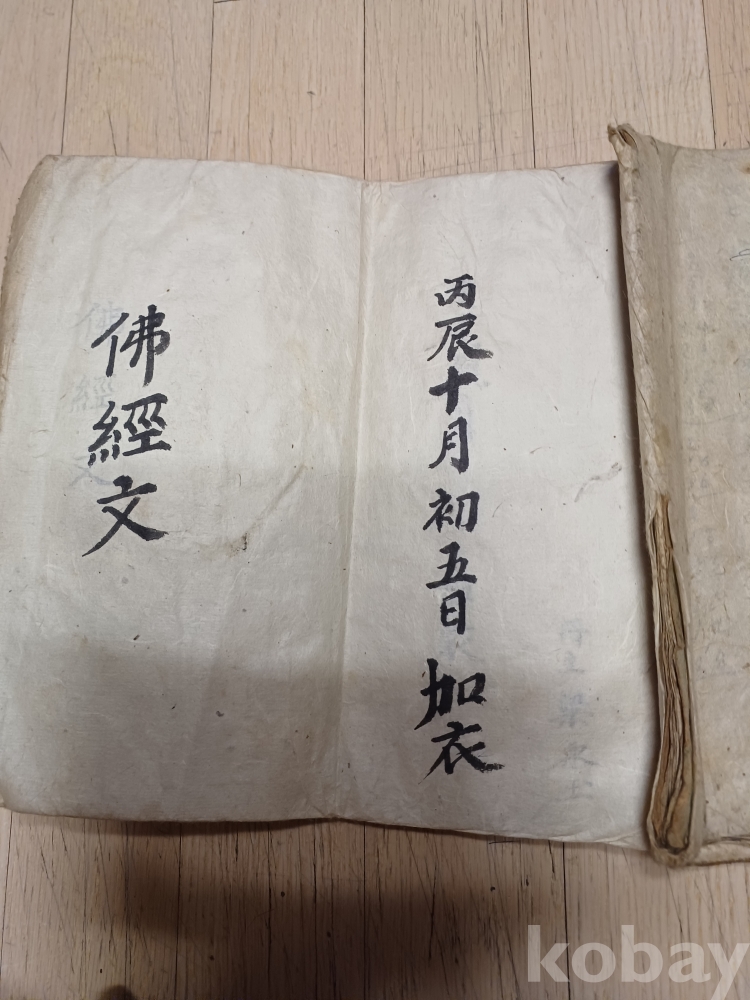 丙辰十月初五日 加衣
佛經文
kobay